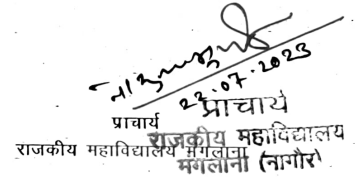 22.07.2023
प्राचार्य
प्राचार्य
राजकीय महाविद्यालय
राजकीय महाविद्यालय मंगलाना
मंगलाना (नागौर)